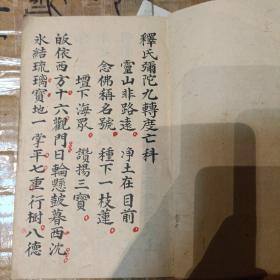 釋氏彌陀九轉度亡科
靈山非路遠 淨土在目前
念佛稱名號 種下一枝蓮
壇下海眾 讚揚三寶
皈依西方十六觀門日輪懸鼓暮西沈
氷結琉璃寶地一掌平七重行樹八德